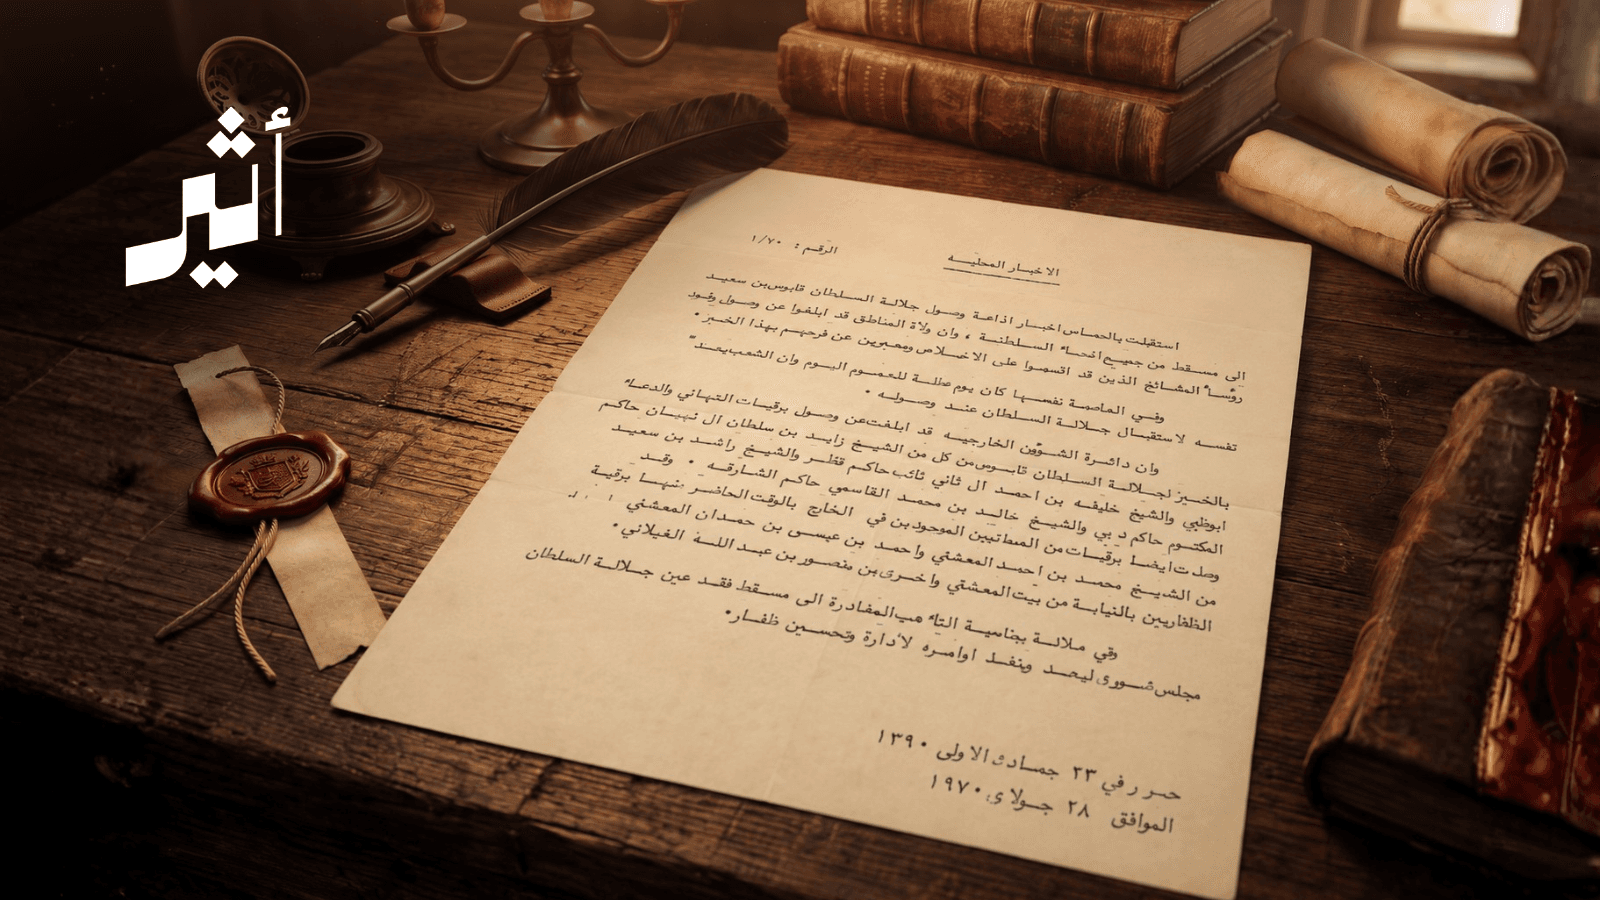 أثير
الاخبار المحليـه
الرقـم : ١/٧٠
استقبلت بالحماس اخبـار اذاعـة وصـول جلالـة السـلطان قابوس بن سعيـد
الى مسـقط من جميع انحـاء السـلطنـة ، وان ولاة المناطق قد ابلغوا عن وصـول وفـود
رؤسـاء المشائخ الذين قد اقسموا على الاخـلاص ومعبرين عن فرحهـم بهـذا الخـبر .
وفـي العاصمـة نفسـها كان يوم عطلـة للعمـوم اليـوم وان الشعب يعـد
نفسـه لاستقبـال جـلالـة السـلطان عنـد وصـولـه .
وان دائـرة الشـؤون الخارجيـه قد ابلغت عن وصول برقيـات التهـاني والدعـاء
بالخـير لجـلالـة السـلطان قابـوس من كل من الشيخ زايـد بن سلطان ال نهيـان حاكـم
ابوظبي والشيخ خليفـه بن احمـد ال ثاني نائب حاكم قطـر والشيـخ راشـد بن سعيـد
المكتـوم حاكم دبي والشيـخ خالـد بن محمـد القاسمي حاكم الشـارقـه . وقـد
وصلت ايضـا برقيـات من العمانيين الموجودين في الخارج بالوقت الحاضـر منهـا برقيـة
من الشيـخ محمـد بن احمـد المعشني واحمـد بن عيسـى بن حمـدان المعشني
الظفاريين بالنيابـة من بيت المعشني واخـرى بن منصـور بن عبـد اللـه الغيـلاني .
وفي صلالـة بمناسبـة التـاهب المغـادرة الى مسـقط فقـد عين جـلالـة السلطان
مجلس شـورى ليعـد وينفـذ اوامـره لادارة وتحسـين ظفـار .
حـرر في ٢٣ جمـادى الاولى ١٣٩٠
الموافق ٢٨ جـولاي ١٩٧٠